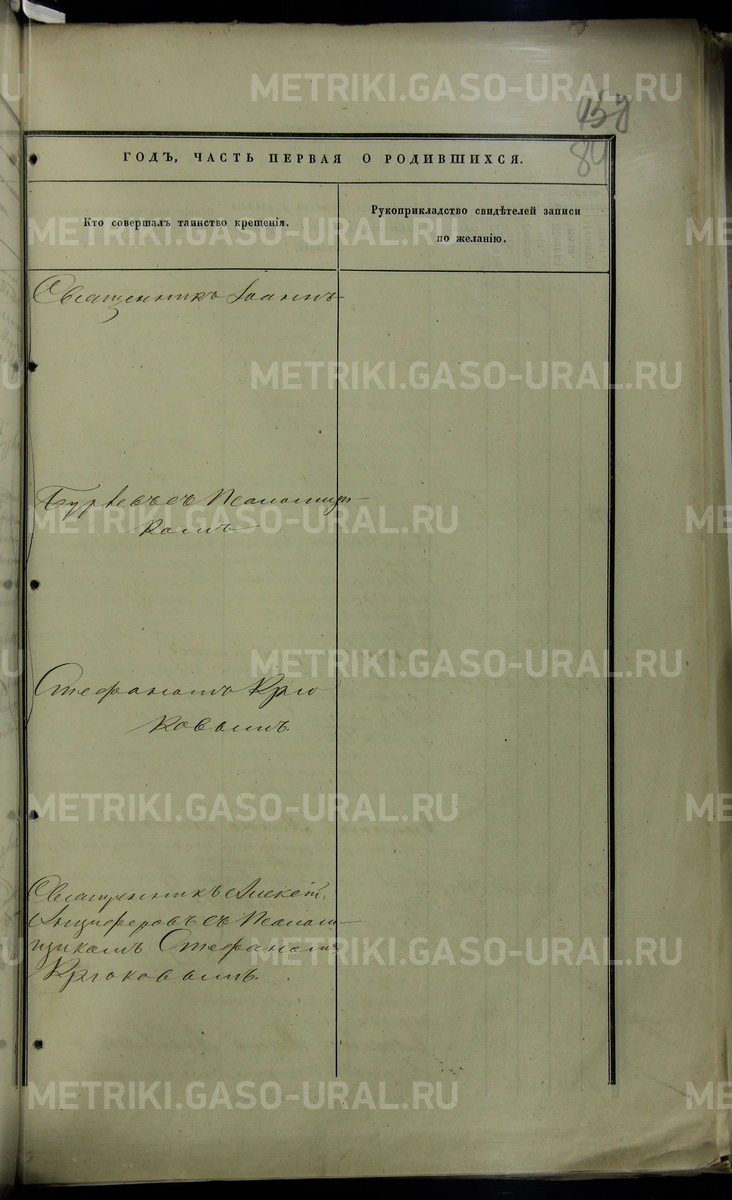 METRIKI.GASO-URAL.RU
84
ГОДЪ, ЧАСТЬ ПЕРВАЯ О РОДИВШИХСЯ.
Кто совершалъ таинство крещенія.
Рукоприкладство свидѣтелей записи
по желанію.
METRIKI.GASO-URAL.RU
Священникъ Іоаннъ
METRIKI.GASO-URAL.RU
съ Псаломщи-
METRIKI.GASO-URAL.RU
комъ
METRIKI.GASO-URAL.RU
Стефаномъ Крю
ковымъ.
METRIKI.GASO-URAL.RU
Священникъ Алексій
Анциферовъ съ Псалом-
щикомъ Стефаномъ
METRIKI.GASO-URAL.RU
Крюковымъ.
METRIKI.GASO-URAL.RU